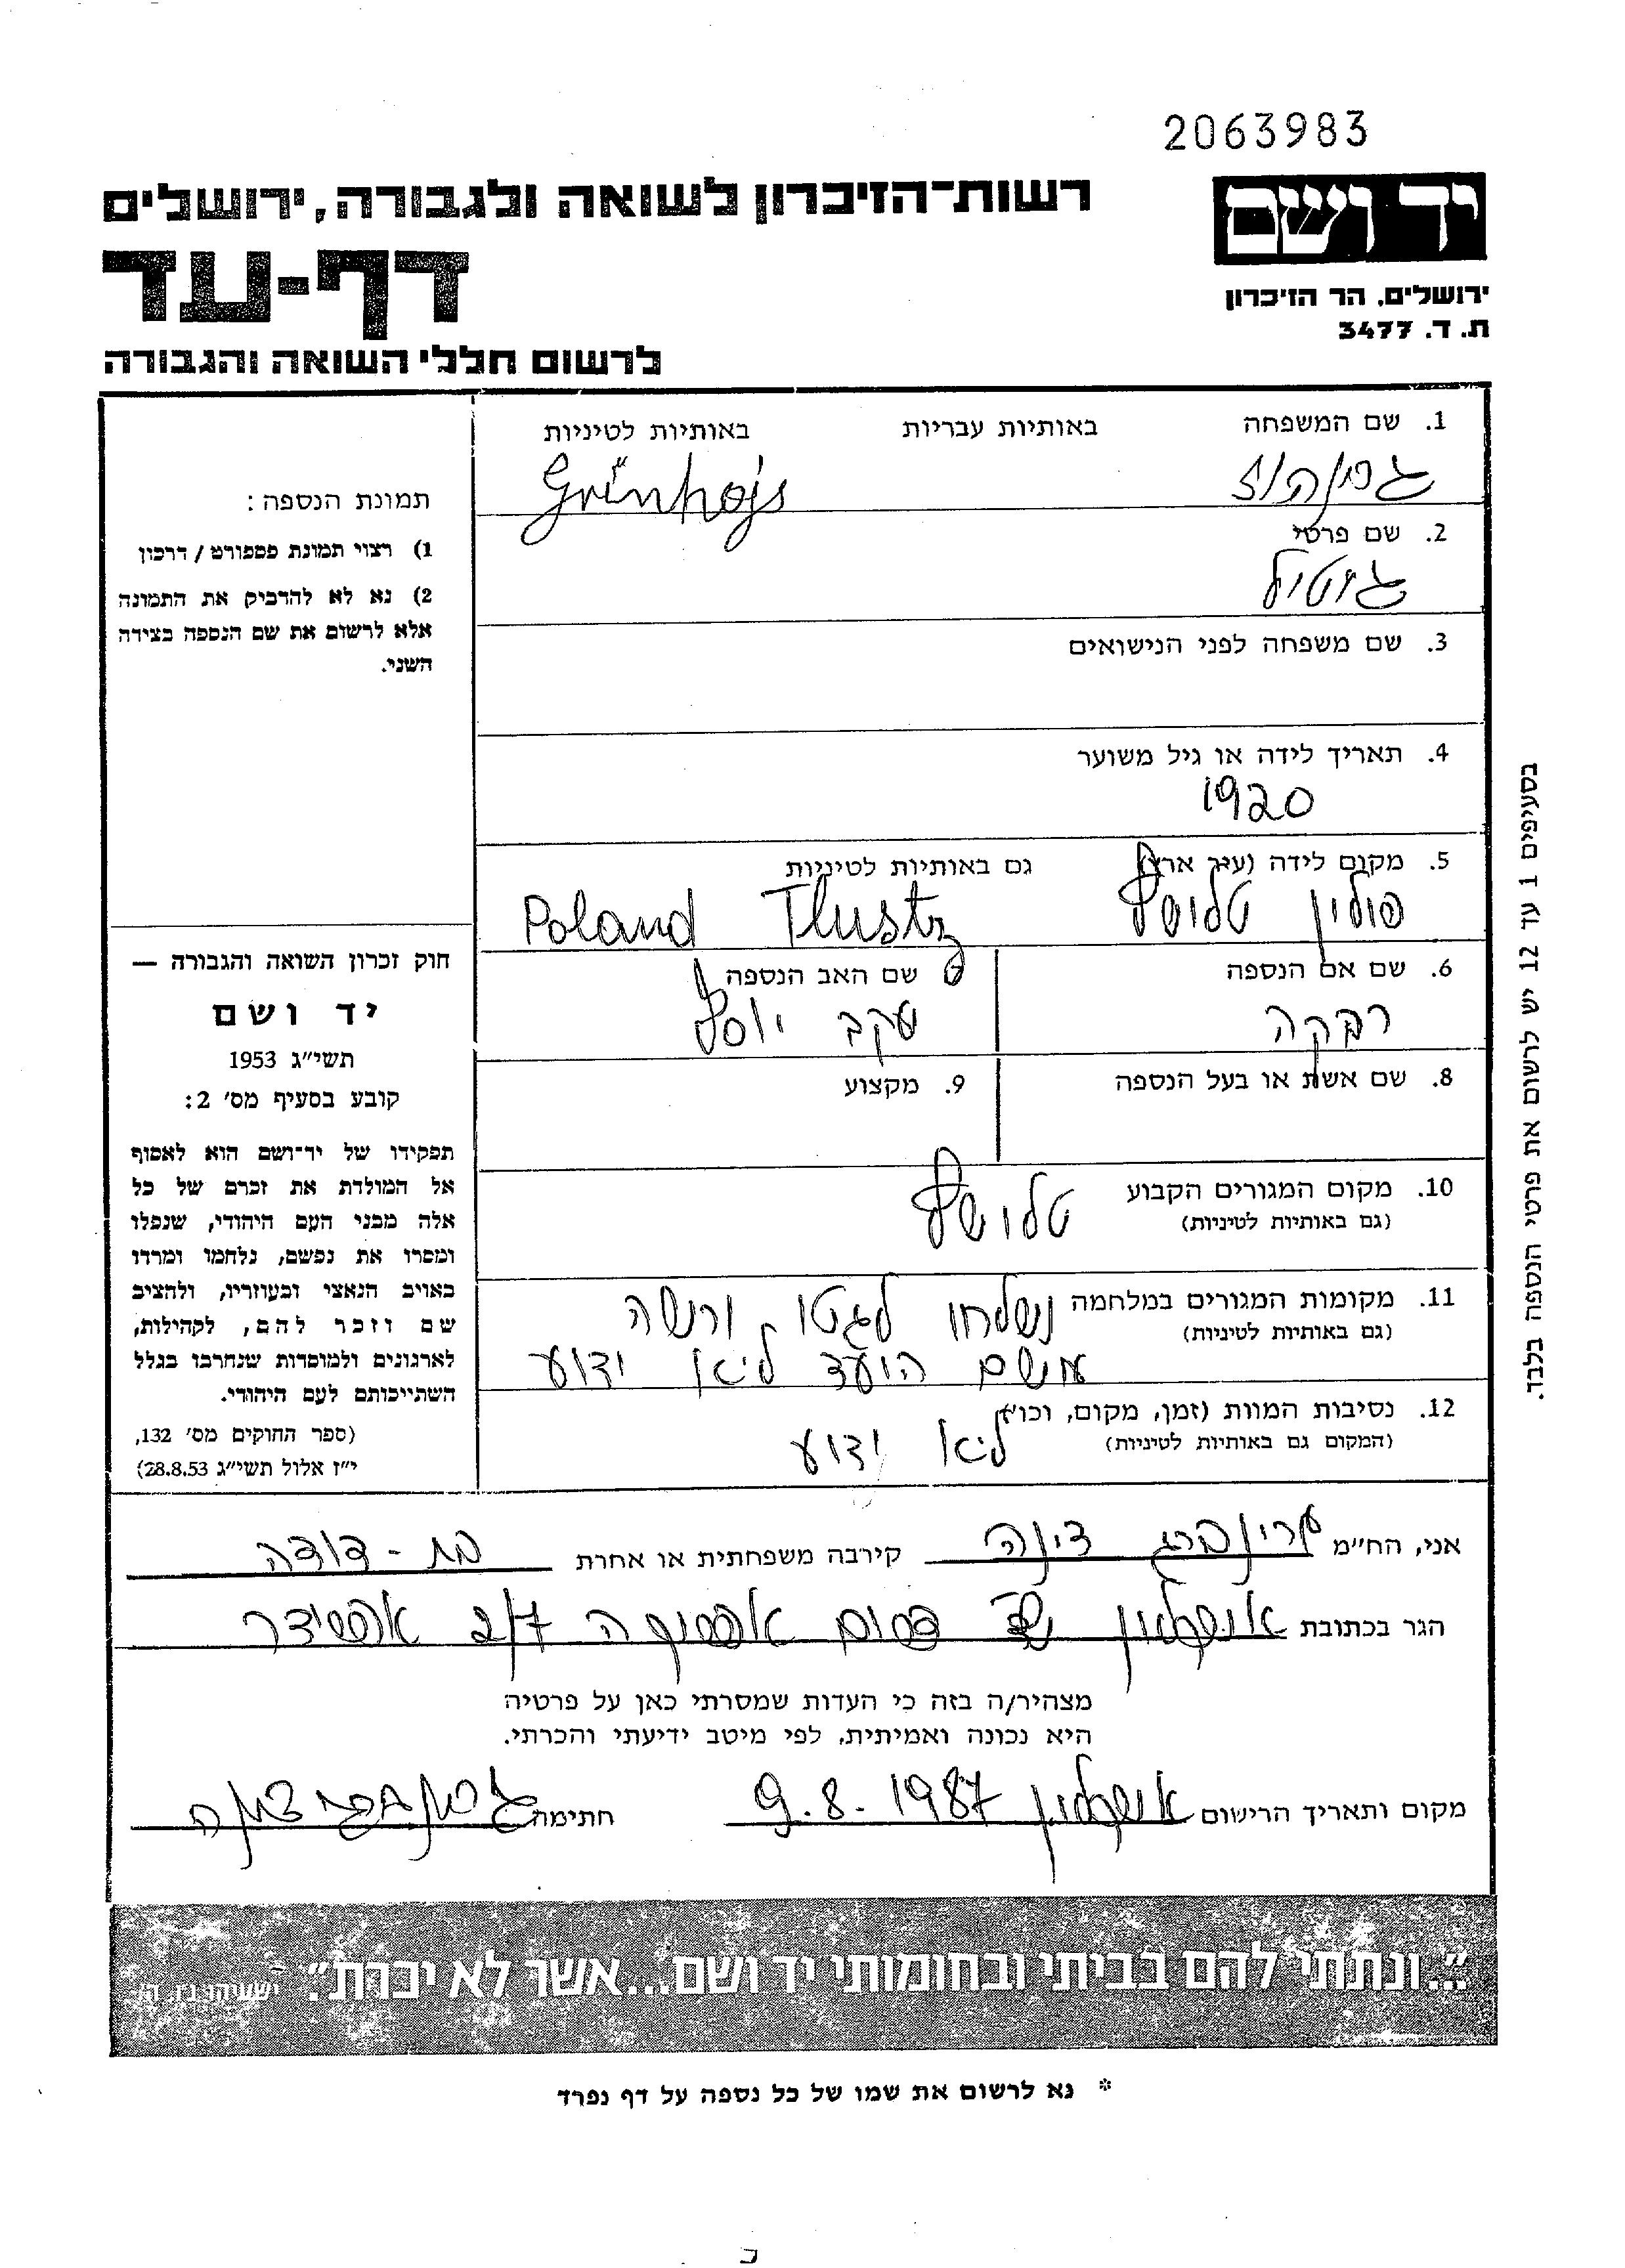 2063983
יד ושם
ירושלים, הר הזיכרון
ת. ד. 3477
רשות־הזיכרון לשואה ולגבורה, ירושלים
דף-עד
לרשום חללי השואה והגבורה
1. שם המשפחה באותיות עבריות באותיות לטיניות
גרינהויז Grünhojs
2. שם פרטי
גוטיל
3. שם משפחה לפני הנישואים
4. תאריך לידה או גיל משוער
1920
5. מקום לידה (עיר, ארץ) גם באותיות לטיניות
פולין טלושץ Tlustz Poland
6. שם אם הנספה 7. שם האב הנספה
רבקה יעקב יוסף
8. שם אשת או בעל הנספה 9. מקצוע
10. מקום המגורים הקבוע
(גם באותיות לטיניות)
טלושץ
11. מקומות המגורים במלחמה נשלחו לגטו ורשה
(גם באותיות לטיניות)
משם היעד לא ידוע
12. נסיבות המוות (זמן, מקום, וכו')
(המקום גם באותיות לטיניות)
לא ידוע
תמונת הנספה:
1) רצוי תמונת פספורט / דרכון
2) נא לא להדביק את התמונה
אלא לרשום את שם הנספה בצידה
השני.
חוק זכרון השואה והגבורה —
יד ושם
תשי"ג 1953
קובע בסעיף מס' 2:
תפקידו של יד־ושם הוא לאסוף
אל המולדת את זכרם של כל
אלה מבני העם היהודי, שנפלו
ומסרו את נפשם, נלחמו ומרדו
באויב הנאצי ובעוזריו, ולהציב
שם וזכר להם, לקהילות,
לארגונים ולמוסדות שנחרבו בגלל
השתייכותם לעם היהודי.
(ספר החוקים מס' 132,
י"ז אלול תשי"ג 28.8.53)
בסעיפים 1 עד 12 יש לרשום את פרטי הנספה בלבד.
אני, הח"מ גרינברג דינה קירבה משפחתית או אחרת בת-דודה
הגר בכתובת אשקלון 7/2 אפרידר
מצהיר/ה בזה כי העדות שמסרתי כאן על פרטיה
היא נכונה ואמיתית, לפי מיטב ידיעתי והכרתי.
מקום ותאריך הרישום אשקלון 9.8.1987 חתימה גרינברג דינה
"...ונתתי להם בביתי ובחומותי יד ושם...אשר לא יכרת". ישעיהו נ"ו, ה'
* נא לרשום את שמו של כל נספה על דף נפרד